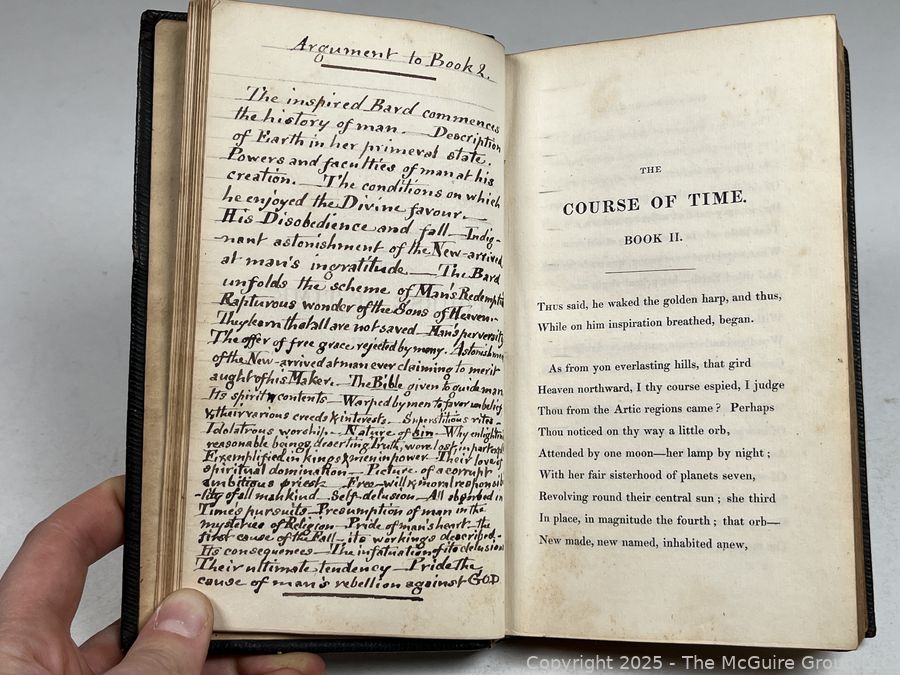 Argument to Book 2.
The inspired Bard commences
the history of man. — Description
of Earth in her primeval state.
Powers and faculties of man at his
creation. — The conditions on which
he enjoyed the Divine favour. —
His Disobedience and fall — Indig-
nant astonishment of the New-arrived
at man's ingratitude — The Bard
unfolds the scheme of Man's Redempti
Rapturous wonder of the Sons of Heaven.
They learn that all are not saved — Man's perversity
The offer of free grace rejected by many. Astonishme
of the New-arrived at man ever claiming to merit
aught of his Maker. — The Bible given to guide man
Its spirit & contents — Warped by men to favor unbelief
& their various creeds & interests. Superstitious rites —
Idolatrous worship — Nature of Sin — Why enlighten
reasonable beings deserting Truth, were lost, in part expl
Exemplified in kings & men in power — Their love of
spiritual domination — Picture of a corrupt
ambitious priest — Free-will & moral responsib
-ility of all mankind — Self-delusion — All absorbed in
Time's pursuits — Presumption of man in the
mysteries of Religion — Pride of man's heart — the
first cause of the Fall — its workings described —
Its consequences — The infatuation of its delusion
Their ultimate tendency — Pride the
cause of man's rebellion against GOD
THE
COURSE OF TIME.
BOOK II.
THUS said, he waked the golden harp, and thus,
While on him inspiration breathed, began.
As from yon everlasting hills, that gird
Heaven northward, I thy course espied, I judge
Thou from the Artic regions came? Perhaps
Thou noticed on thy way a little orb,
Attended by one moon—her lamp by night;
With her fair sisterhood of planets seven,
Revolving round their central sun; she third
In place, in magnitude the fourth; that orb—
New made, new named, inhabited anew,
Copyright 2025 - The McGuire Group LLC